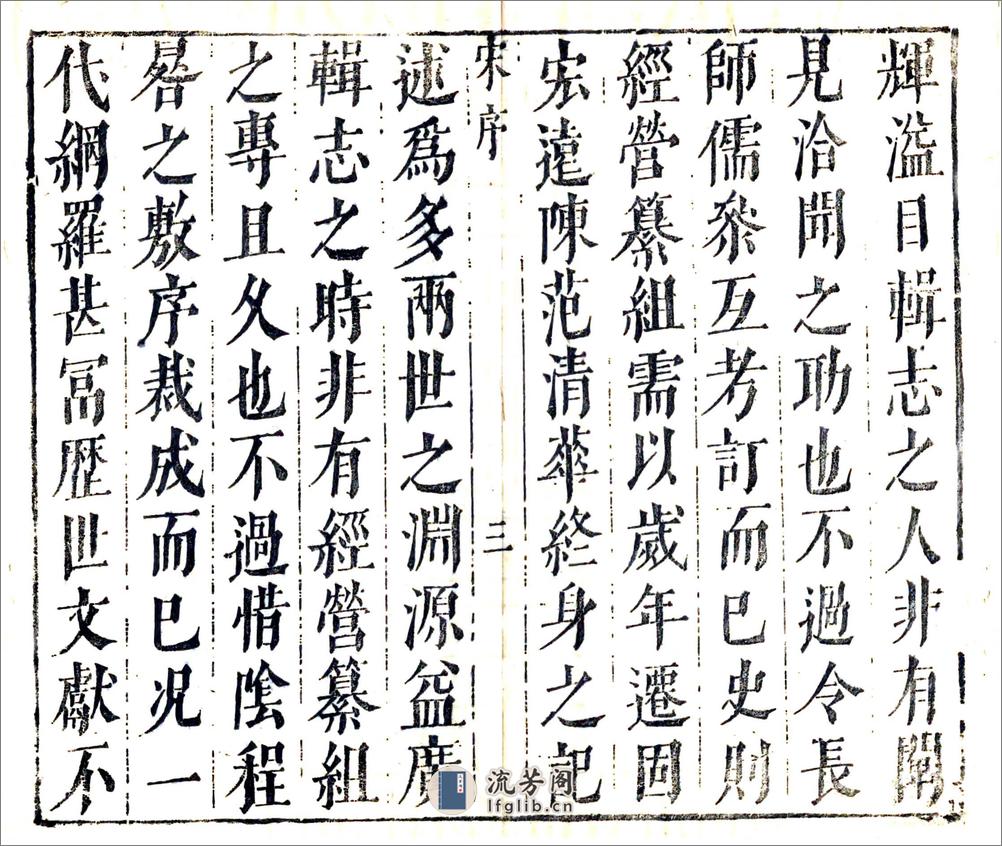 輝溢目輯志之人非有聞
見洽聞之功也不過令長
師儒叅互考訂而已史則
經營纂組需以歲年遷固
宏遠陳范清華終身之記
宋序
三
述爲多兩世之淵源益廣
輯志之時非有經營纂組
之專且久也不過惜陰程
晷之敷序裁成而已况一
代網羅甚冨歴世文獻不
流芳阁
lfglib.cn